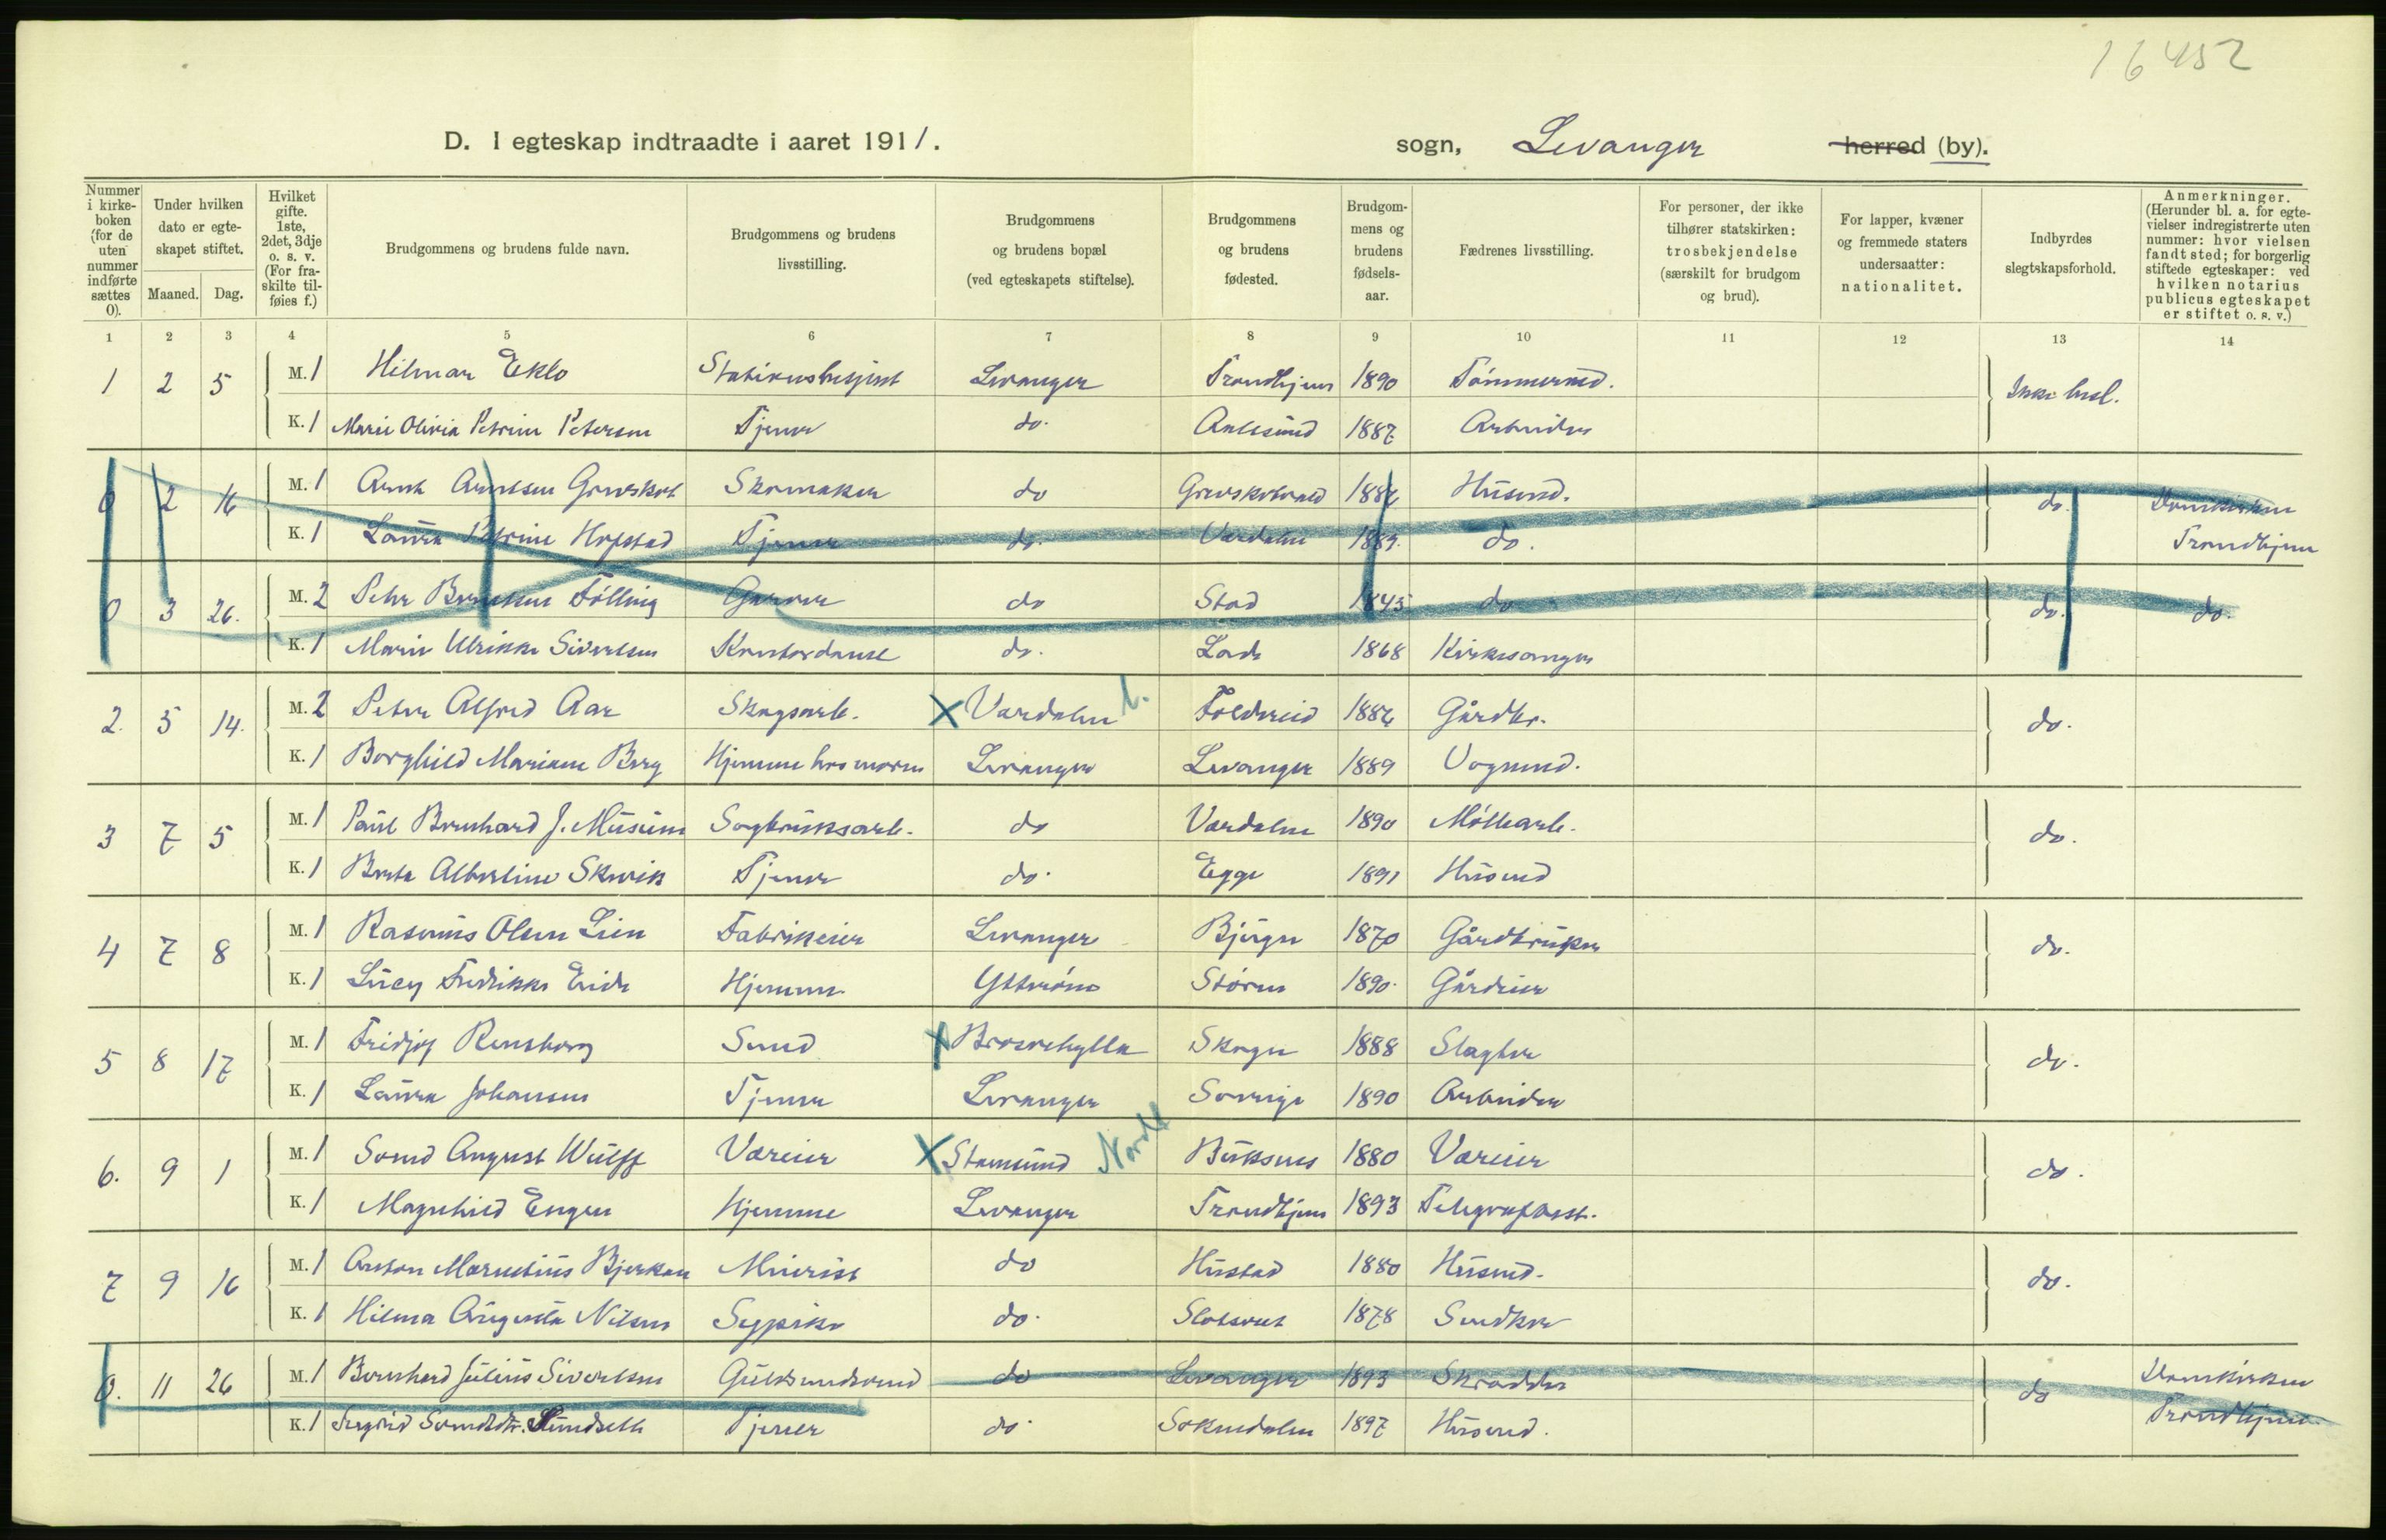 16452
D. I egteskap indtraadte i aaret 1911.
sogn, Levanger herred (by).
Nummer i kirkeboken (for de uten nummer indførte sættes 0).
Under hvilken dato er egteskapet stiftet.
Maaned. Dag.
Hvilket gifte. 1ste, 2det, 3dje o. s. v. (For fraskilte tilføies f.)
Brudgommens og brudens fulde navn.
Brudgommens og brudens livsstilling.
Brudgommens og brudens bopæl (ved egteskapets stiftelse).
Brudgommens og brudens fødested.
Brudgommens og brudens fødselsaar.
Fædrenes livsstilling.
For personer, der ikke tilhører statskirken: trosbekjendelse (særskilt for brudgom og brud).
For lapper, kvæner og fremmede staters undersaatter: nationalitet.
Indbyrdes slegtskapsforhold.
Anmerkninger. (Herunder bl. a. for egtevielser indregistrerte uten nummer: hvor vielsen fandt sted; for borgerlig stiftede egteskaper: ved hvilken notarius publicus egteskapet er stiftet o. s. v.)
1 2 3 4 5 6 7 8 9 10 11 12 13 14
1 2 5 M. 1 Hilmar Eklo Stationsbetjent Levanger Trondhjem 1890 Tømmermd. Ikke besl.
K. 1 Marie Olivia Petrine Petersen Tjener do. Aalesund 1887 Arbeider
0 2 16 M. 1 Arnt Arntsen Grevskot Skomaker do Grevskotvald Husmd. do. Domkirken
K. 1 Laura Petrine Hopstad Tjener do. Værdalen do. Trondhjem
0 3 26. M. 2 Peter Følling Garver do Stod 1845 do do. do.
K. 1 Marie Ulrikke Sivertsen Kontordame do. Lade 1868 Kirkesanger
2. 5 14. M. 2 Peter Alfred Aar Skogsarb. X Værdalen Foldereid Gårdbr. do.
K. 1 Borghild Mariane Berg Hjemme hos moren Levanger Levanger 1889 Vognmd.
3 7 5 M. 1 Paul Bernhard J. Musum Sagbruksarb. do Værdalen 1890 Møllearb. do.
K. 1 Berta Albertine Skevik Tjener do. Egge 1891 Husmd
4 7 8 M. 1 Rasmus Olsen Lien Fabrikeier Levanger Bjugn 1870 Gårdbruker do.
K. 1 Lucy Fredrikke Eide Hjemme Ytterøen Støren 1890. Gårdeier
5 8 17 M. 1 Fridjof Rensberg Smed X Skogn 1888 Slagter do.
K. 1 Laura Johansen Tjener Levanger Sverige 1890 Arbeider
6. 9 1 M. 1 Svend August Wulff Væreier X Stamsund Nordl Buksnes 1880 Væreier do.
K. 1 Magnhild Engen Hjemme Levanger Trondhjem 1893 Telegrafasst.
7 9 16 M. 1 Anton Bjerkan Meierist do Hustad 1880 Husmd. do.
K. 1 Hilma Augusta Nilsen Sypike do. 1878 Snedker
0. 11 26 M. 1 Bernhard Julius Sivertsen Guldsmedsvend do Levanger 1893 Skrædder do Domkirken
K. 1 Svendsdtr. Tjener do. Soknedalen 1897 Husmd. Trondhjem.